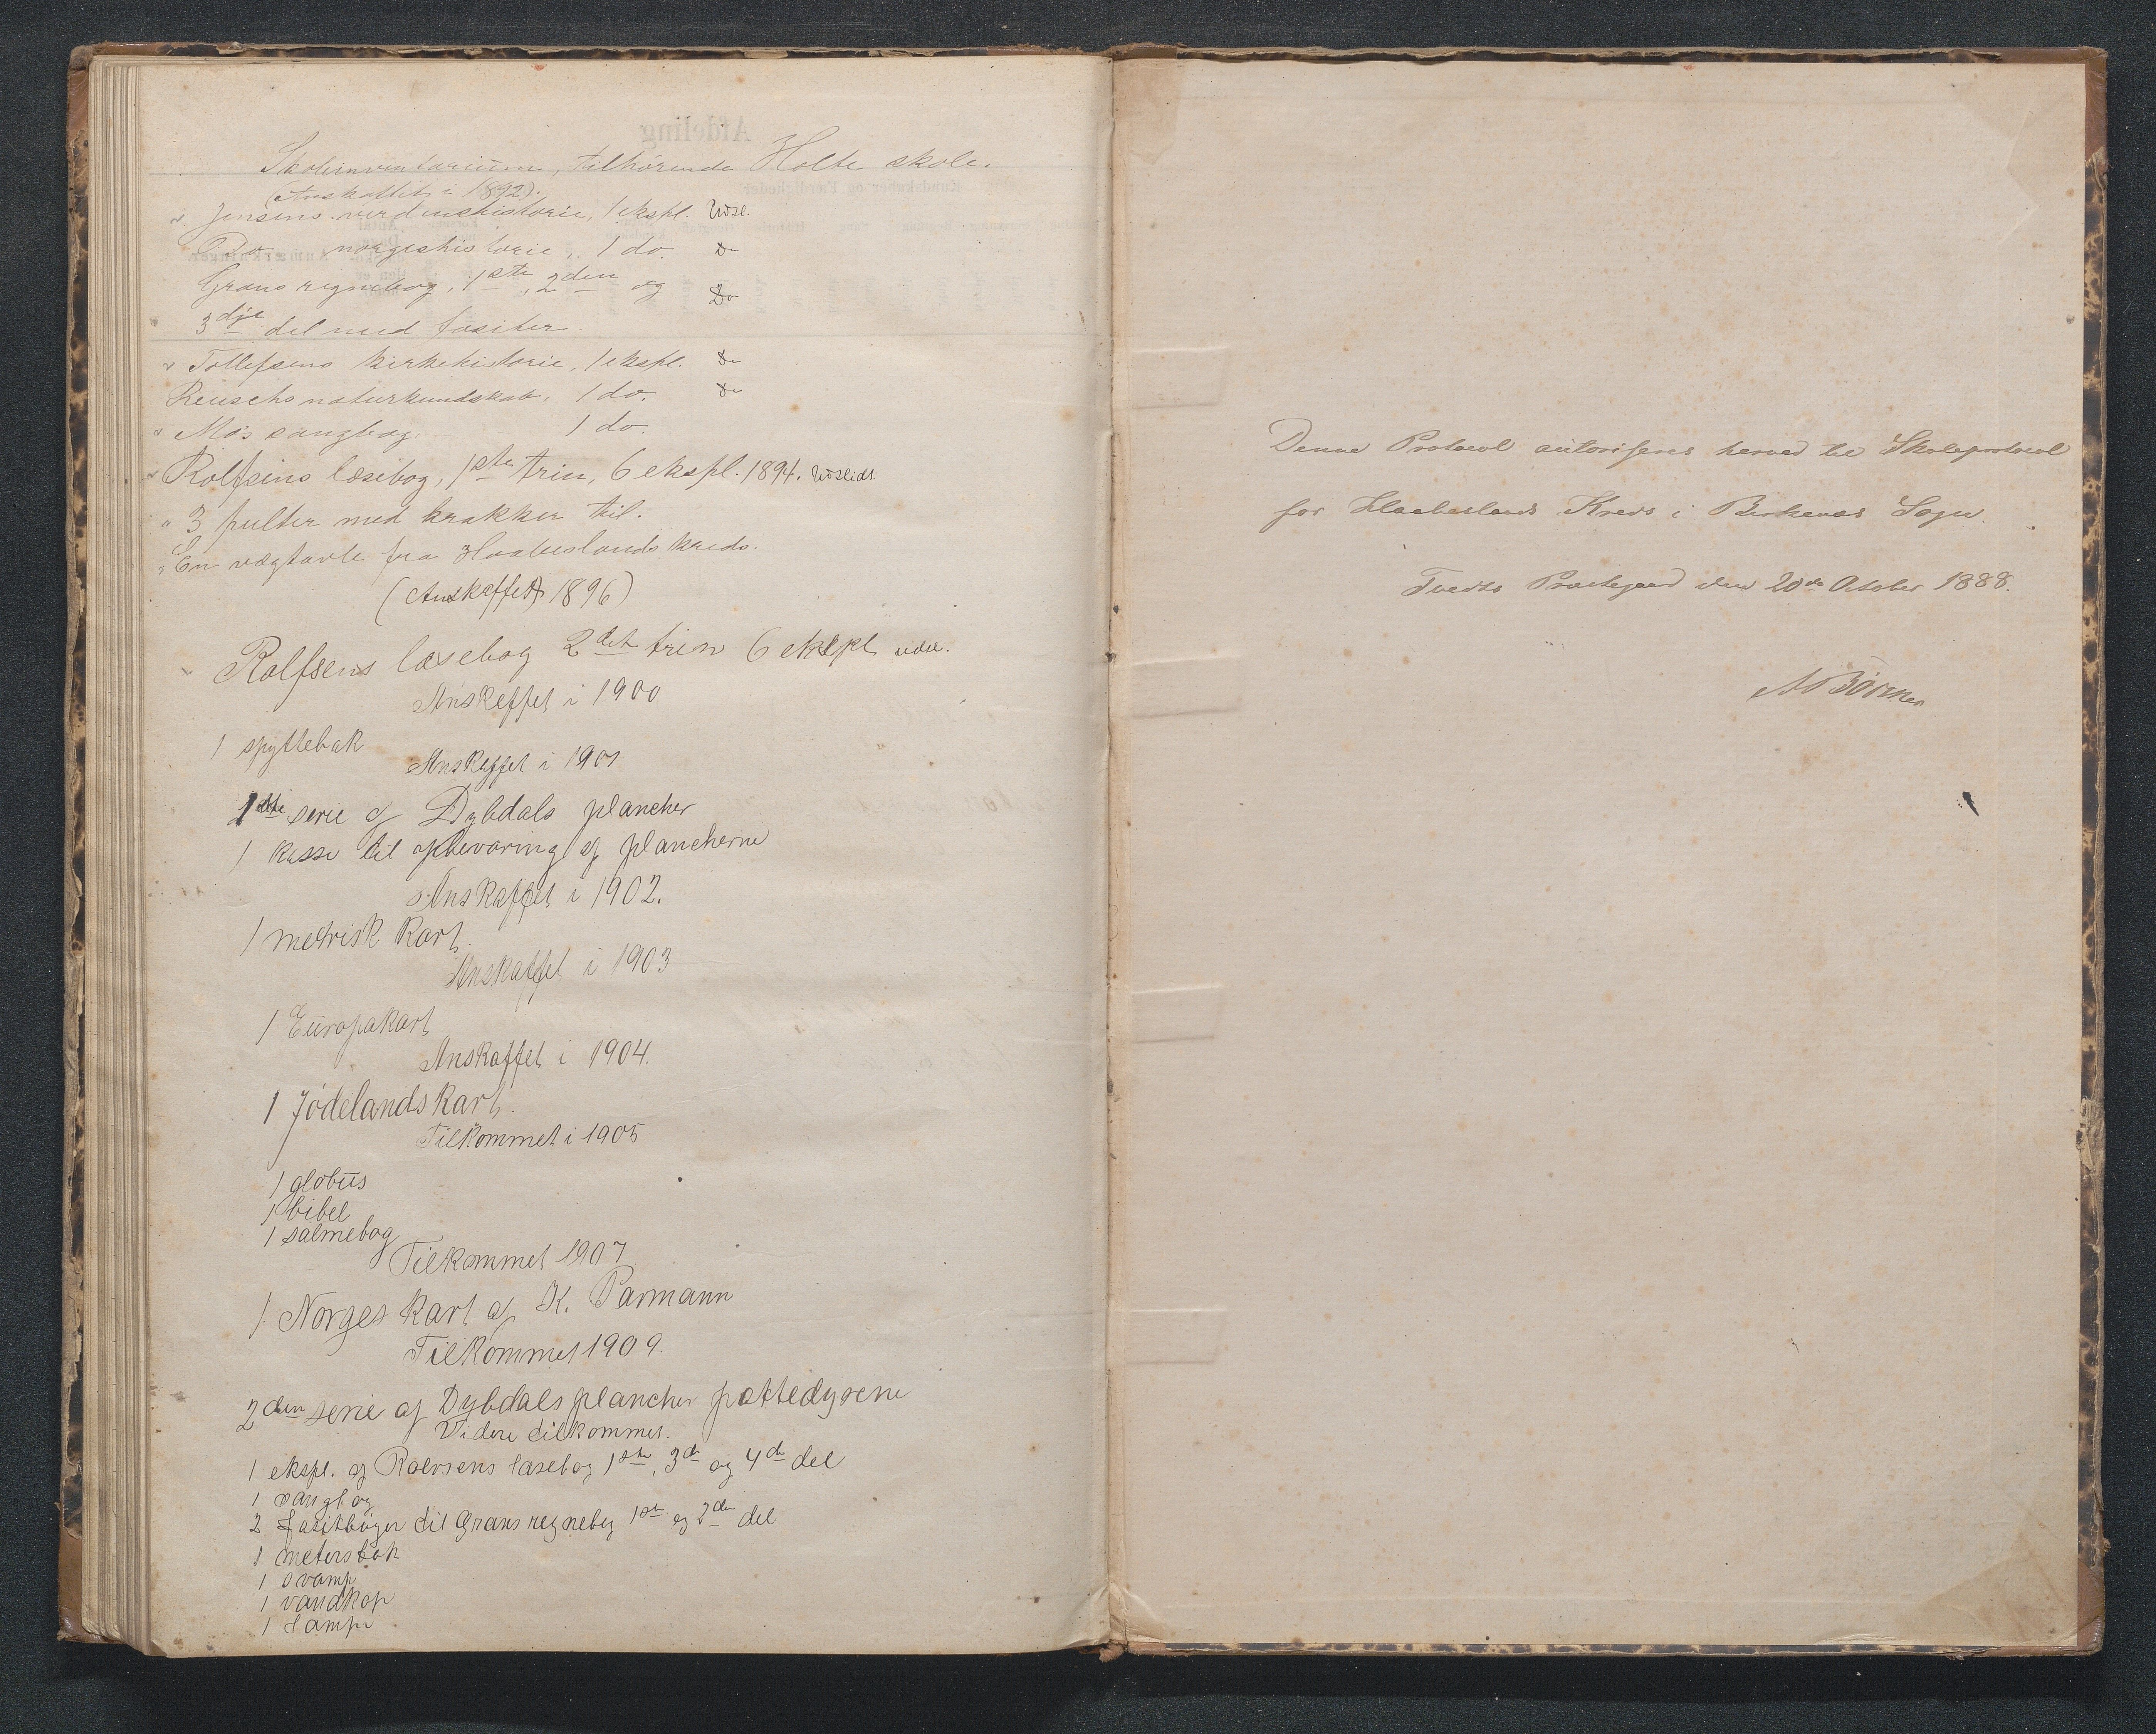 Skoleinventarium, tilhørende Holte skole.
(Anskaffet i 1892).
" Jensens verdenshistorie, 1 ekspl. Udsl.
Do norgeshistorie, 1 do. Do
Grans regnebog, 1ste, 2den og Do
3dje del med fasiter.
" Tollefsens kirkehistorie, 1 ekspl. Do
Reuschs naturkundskab, 1 do. Do
" Mo's sangbog 1 do.
" Rolfsens læsebog, 1ste trin, 6 ekspl. 1894. Udslidt.
" 3 pulter med krakker til.
" En vægtavle fra Haabeslands kreds.
(Anskaffet 1896)
Rolfsens læsebog 2det trin 6 ekspl. udsl.
Anskaffet i 1900
1 spyttebak
Anskaffet i 1901
1ste serie af Dybdals plancher
1 kasse til opbevaring af plancherne
Anskaffet i 1902.
1 metrisk kart.
Anskaffet i 1903
1 Europakart
Anskaffet i 1904.
1 Jødelandskart.
Tilkommet i 1905
1 globus
1 bibel
1 salmebog
Tilkommet 1907
1 Norges kart af K. Parmann
Tilkommet 1909.
2den serie af Dybdals plancher pattedyrene
Videre tilkommet.
1 ekspl. af læsebog 1ste, 3de og 4de del
1 sangbog
2 fasitbøger til Grans regnebog 1ste og 2den del
1 meterstok
1 svamp
1 vandkop
1 lampe
Denne Protocol autoriseres herved til Skoleprotocol
for Haabeslands Kreds i Birkenæs Sogn.
Tvedts Præstegaard den 20de October 1888.